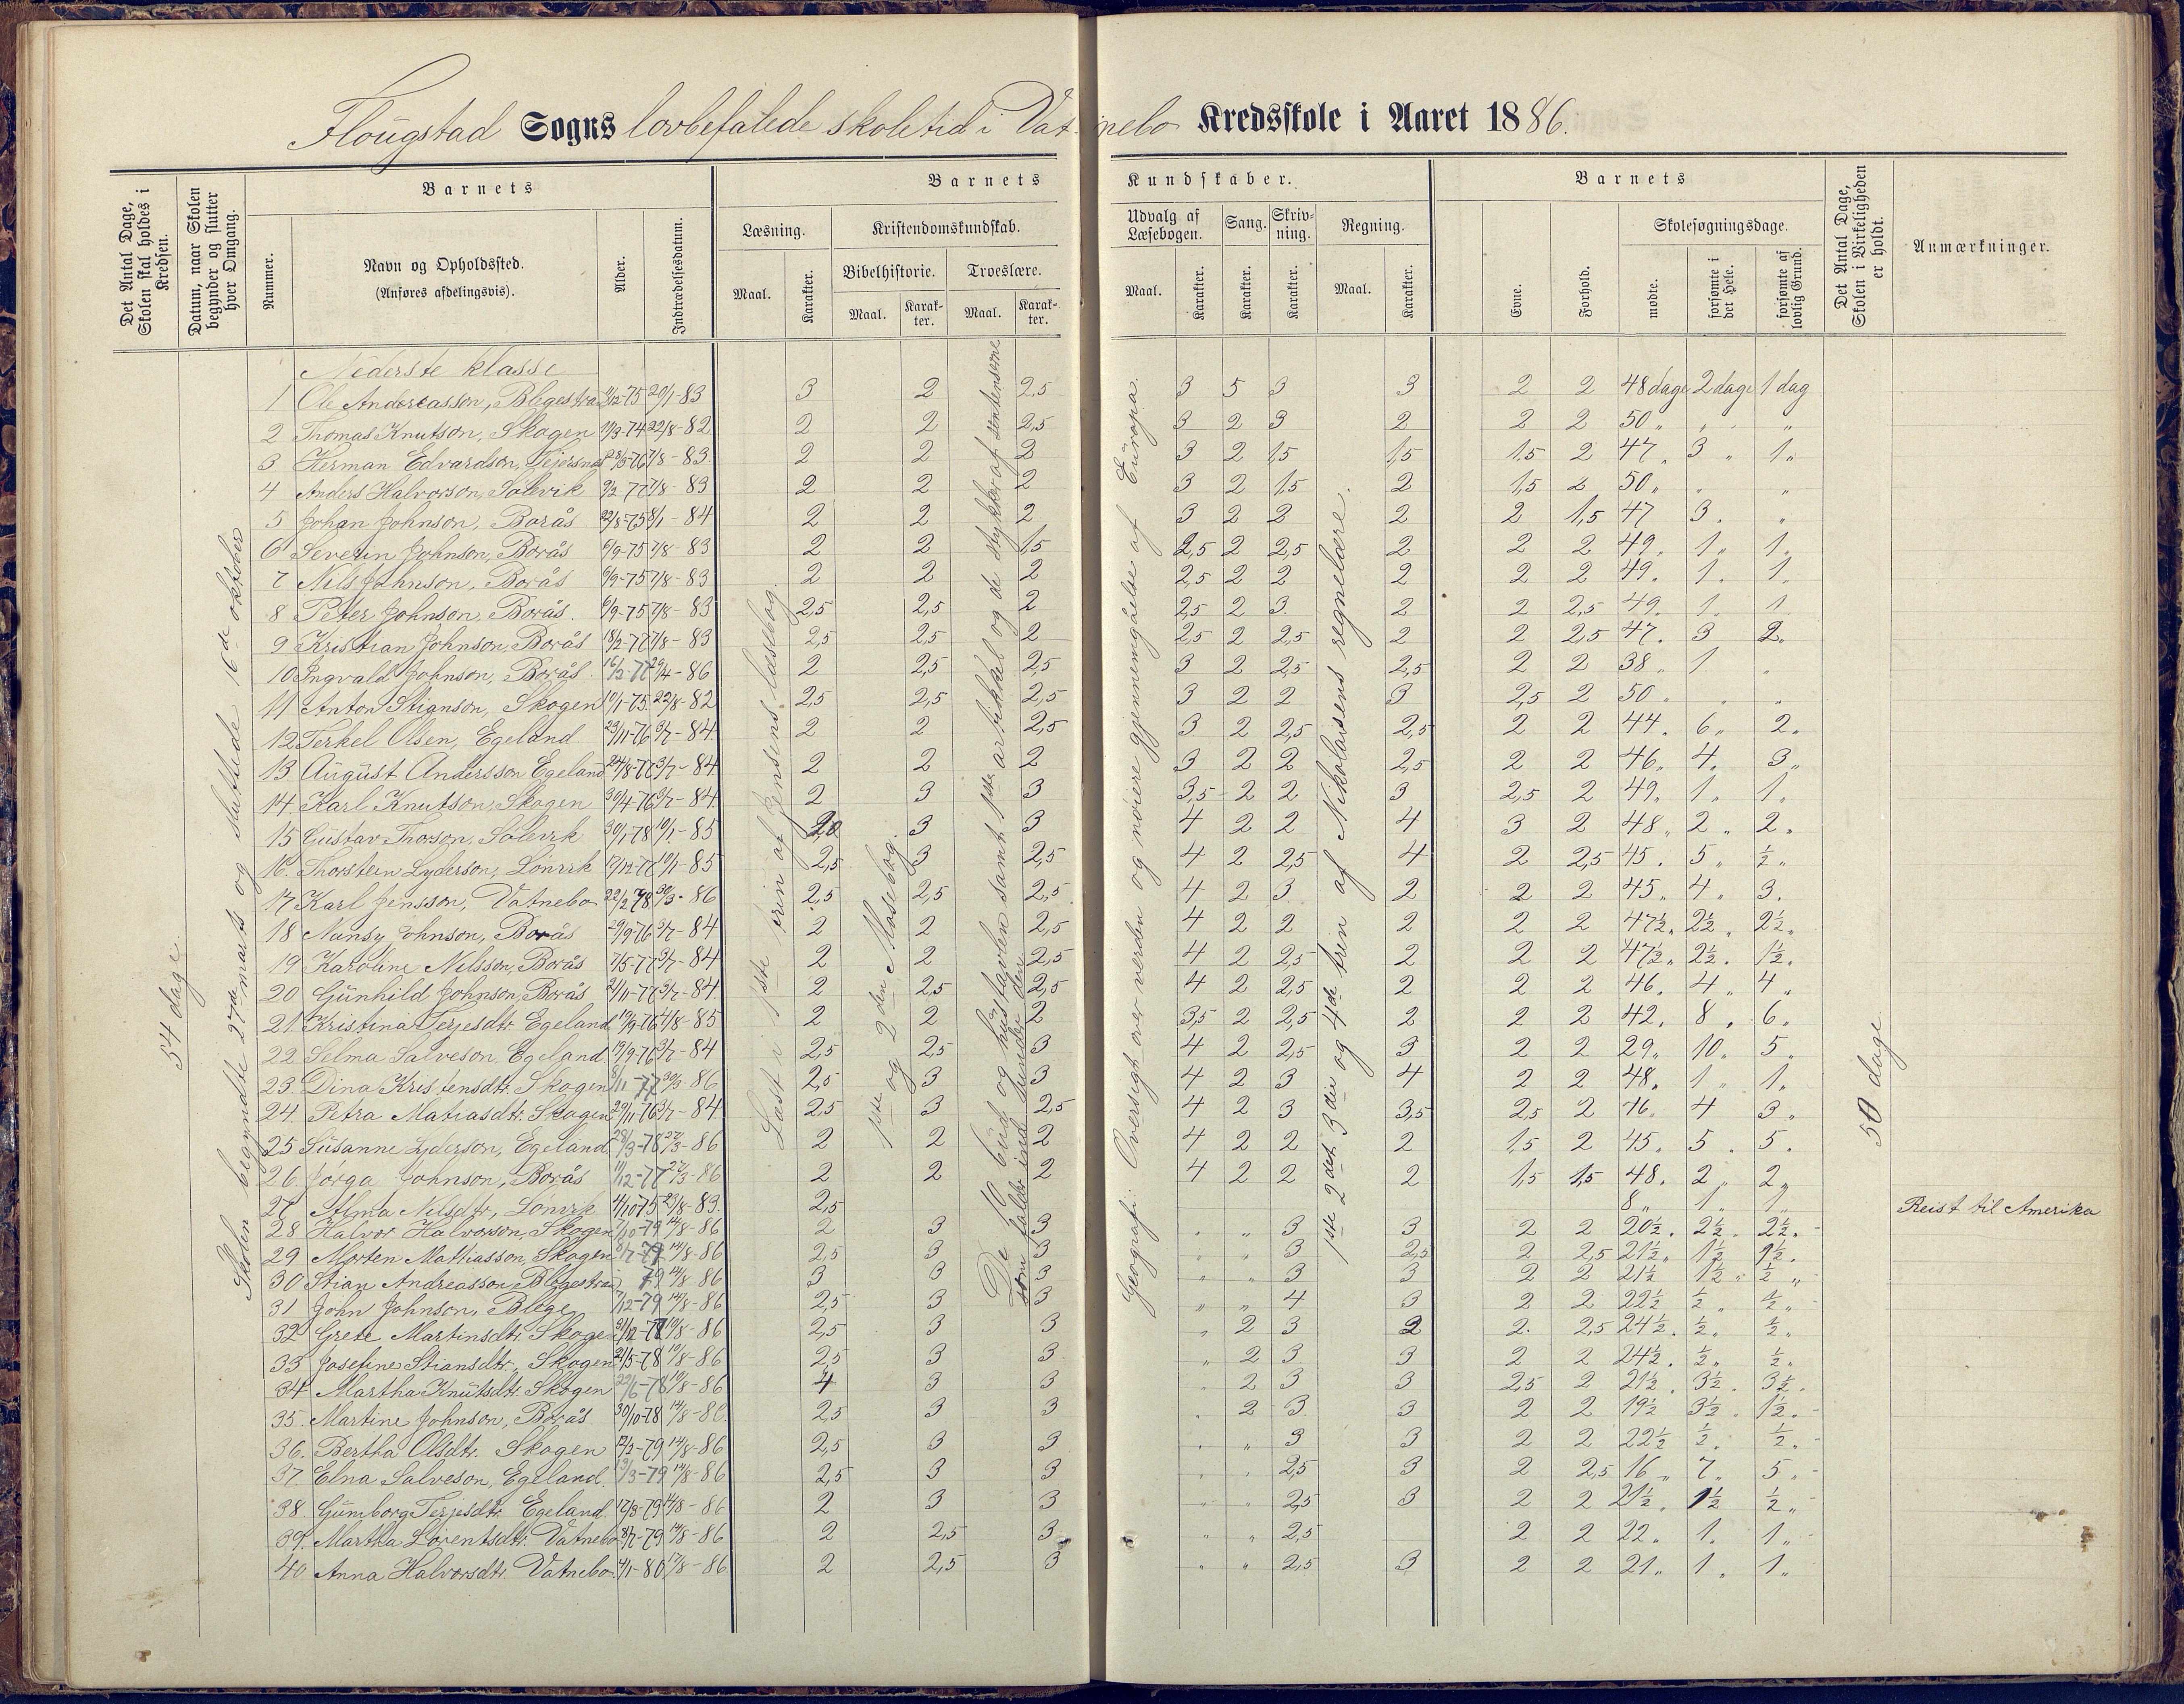 Flougstad Sogns lovbefalede skoletid i Vatnebo Kredsskole i Aaret 1886.
Det Antal Dage, Skolen skal holdes i Kredsen.
Datum, naar Skolen begynder og slutter hver Omgang.
Barnets
Nummer.
Navn og Opholdssted.
(Anføres afdelingsvis).
Alder.
Indtrædelsesdatum.
Barnets Kundskaber.
Læsning.
Maal.
Karakter.
Kristendomskundskab.
Bibelhistorie.
Maal.
Karak-ter.
Troeslære.
Maal.
Karak-ter.
Udvalg af Læsebogen.
Maal.
Karakter.
Sang.
Karakter.
Skriv-ning.
Karakter.
Regning.
Maal.
Karakter.
Barnets
Evne.
Forhold.
Skolesøgningsdage.
mødte.
forsømte i det Hele.
forsømte af lovlig Grund.
Det Antal Dage, Skolen i Virkeligheden er holdt.
Anmærkninger.
54 dage.
Skolen begyndte 27de marts og sluttede 16de oktober
Læst i 1ste trin af Jensens læsebog.
1ste og 2den Mosebog.
De 10 bud og hustavlen samt 1ste artikkel og de stykker af sentenserne
som falder ind under den
Geografi: Oversigt over verden og nøiere gjennemgåelse af Europa.
1ste 2det 3die og 4de trin af Nikolaisens regnelære.
50 dage
Nederste klasse
1 Ole Andreasson, Blegestran 20/1-83 3 2 2,5 3 5 3 3 2 2 48 dage 2 dage 1 dag
2 Thomas Knutson, Skogen 22/8-82 2 2 2,5 3 2 3 2 2 2 50 " " "
3 Herman Edvardson, 7/8-83 2 2 2 3 2 1,5 1,5 1,5 2 47 " 3 " 1 "
4 Anders Halvorson, Sølevik 9/2-77 7/8-83 2 2 2 3 2 1,5 2 1,5 2 50 " " "
5 Johan Johnson, Borås 22/8-75 8/1-84 2 2 2 3 2 2 2 2 1,5 47 3 . "
6 Severin Johnson, Borås 6/9-75 7/8-83 2 2 1,5 2,5 2 2,5 2 2 2 49 . 1 " 1 .
7 Nils Johnson, Borås 6/9-75 7/8-83 2 2 2 2,5 2 2 2 2 2 49 . 1 . 1 .
8 Peter Johnson, Borås. 6/9-75 7/8-83 2,5 2,5 2 2,5 2 3 2 2 2,5 49 . 1 . 1
9 Kristian Johnson, Borås 18/2-77 7/8-83 2,5 2,5 2 2,5 2 2,5 2 2 2,5 47 . 3 2 .
10 Ingvald Johnson, Borås. 29/4-86 2 2,5 2,5 3 2 2,5 2,5 2 2 38 " 1 . .
11 Anton Stianson, Skogen 10/1-75 22/8-82 2,5 2,5 2,5 3 2 2 3 2,5 2 50 " . .
12 Terkel Olsen, Egeland 29/11-76 3/7-84 2 2 2,5 3 2 2,5 2,5 2 2 44 . 6 " 2 .
13 August Andersson Egeland 24/8-77 3/7-84 2 2 2 3 2 2 2,5 2 2 46 " 4 . 3 "
14 Karl Knutson Skogen 30/4-76 3/7-84 2 3 3 3,5 2 2 3 2,5 2 49 " 1 " 1 .
15 Gustav Thorson, Sølevik 30/1-78 10/1-85 2,0 3 3 4 2 2 4 3 2 48 " 2 " 2 .
16. Thorstein Lyderson, Lønvik 17/12-77 10/1-85 2,5 3 2,5 4 2 2,5 4 2 2,5 45 . 5 " ½ "
17 Karl Jensson, Vatnebo 22/2 78 30/3-86 2,5 2,5 2,5 4 2 3 2 2 2 45 " 4 " 3 .
18 Nansy Johnson, Borås 29/9-76 3/7-84 2 2 2,5 4 2 2 2 2 2 47½ . 2½ " 2½ .
19 Karoline Nilsson, Borås 7/5-77 3/7-84 2 2 2,5 4 2 2,5 2 2 2 47½ " 2½ . 1½ .
20 Gunhild Johnson, Borås 2/11-77 3/7-84. 2 2,5 2,5 4 2 2,5 2 2 2 46 . 4 " 4 "
21. Kristina Terjesdtr. Egeland 19/9-76 4/8-85 2 2 2 3,5 2 2,5 2 2 2 42 . 8 . 6 .
22. Selma Salveson Egeland. 19/9-76 3/7-84 2,5 2,5 3 4 2 2,5 3 2 2 29 " 10 . 5 "
23. Dina Kristensdtr. Skogen 8/11-77 30/3-86 2,5 3 3 4 2 3 4 2 2 48 . 1 " 1 .
24. Petra Matiasdtr. Skogen 29/11-76 3/7-84 2,5 3 2,5 4 2 3 3,5 2,5 2 . 4 3 .
25 Susanne Lyderson, Egeland 28/3-78 27/3-86 2 2 2 4 2 2 2 1,5 2 45 . 5 . 5 .
26. Jørga Johnson, Borås 11/12-77 27/3-86 2 2 2 4 2 2 2 1,5 1,5 48 . 2 " 2 "
27. Alma Nilsdtr, Lønvik 4/10-75 23/8-83. 2,5 8 " 1 " 1 " Reist til Amerika
28 Halvor Halvorson, Skogen 7/10-79 14/8-86 2 3 3 . " 3 3 2 2 20½ . 2½ " 2½ .
29 Morten Mathiasson, Skogen 8/7-79 14/8-86 2,5 3 3 " " 3 2,5 2 2,5 21½ " 1½ 1½ .
30 Stian Andreasson Blegestran 79 14/8 86 3 3 3 " " 3 3 2 2 21½ 1½ " ½ "
31 John Johnson, Blege 7/12-79 14/8-86 2,5 3 3 " " 4 3 2 2 22½ ½ " ½ "
32 Grete Martinsdtr. Skogen 10/8-86 2,5 3 3 " 2 3 2 2. 2,5 24½ . ½ " ½ "
33 Josefine Stiansdtr, Skogen 21/5-78 10/8-86 2,5 3 3 " 2 3 3 2 2 24½ . ½ " ½ "
34 Martha Knutsdtr. Skogen 22/6-78 10/8-86 4 3 3 . 2 3 3 2,5 2 21½ . 3½ . 3½ .
35. Martine Johnson, Borås 30/10-78 14/8-86. 2,5 3 3 . 2 3 3 2 2 19½ 3½ . 1½ .
36. Bertha Olsdtr. Skogen 12/2-79 14/8-86 2,5 3 3 . " 3 3 2 2 22½ ½ . ½ "
37. Elna Salveson, Egeland. 13/3-79 14/8-86 2,5 3 3 " . 2,5 3 2 2,5 16 " 7 " 5 "
38. Gumborg Terjesdtr. Egeland. 17/3-79 14/8-86 2 3 3 " " 2,5 3 2 2 21½ . 1½ ½ "
39. Martha Lorentsdtr. Vatnebo 8/7-79 14/8-86 2 2,5 3 " " 2,5 2 2 22 " 1 . 1 "
40 Anna Halvorsdtr. Vatnebo. 4/1-80 17/8-86 2 2,5 3 " " 2,5 3 2 2 21 " 1 " 1 .